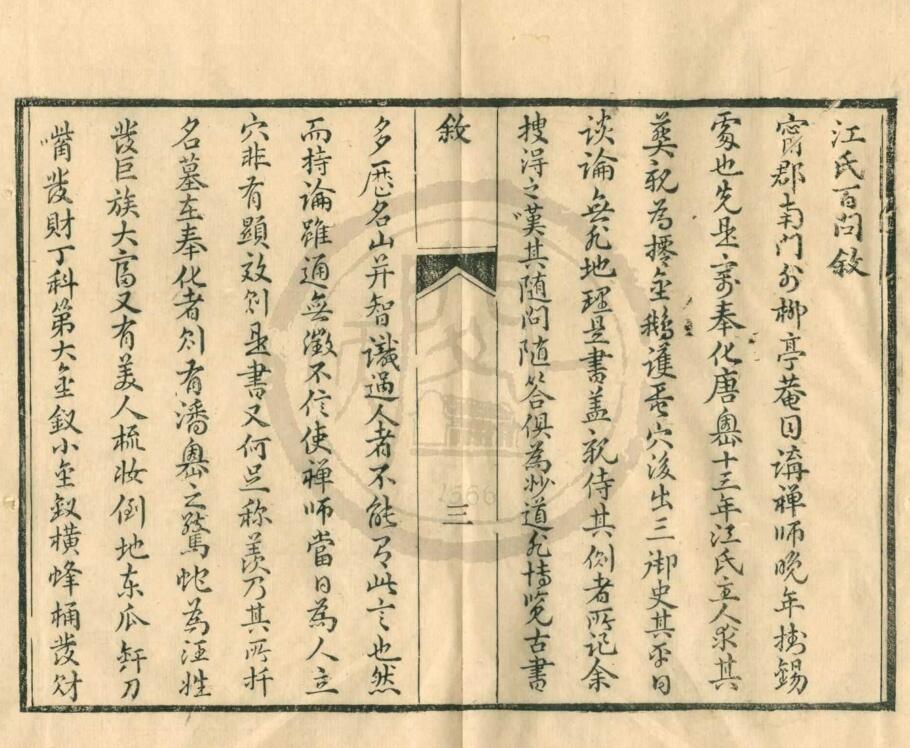 江氏百問敘
甯郡南門外柳亭菴目講禪師晚年掛錫
處也先是寓奉化唐嶴十三年江氏主人求其
葬親為擇金鵝護蛋穴後出三御史其平日
談論無非地理是書蓋親侍其側者所記余
搜得之嘆其隨問隨答俱為妙道非博覽古書
敘
三
多歷名山并智識過人者不能此言也然
而持論雖通無徵不信使禪師當日為人立
穴非有顯效則是書又何足称羨乃其所扦
名墓在奉化者則有潘嶴之驚蛇為汪姓
發巨族大富又有美人梳妝倒地东瓜刀
嘴發財丁科第大金釵小金釵橫蜂桶發财
1566